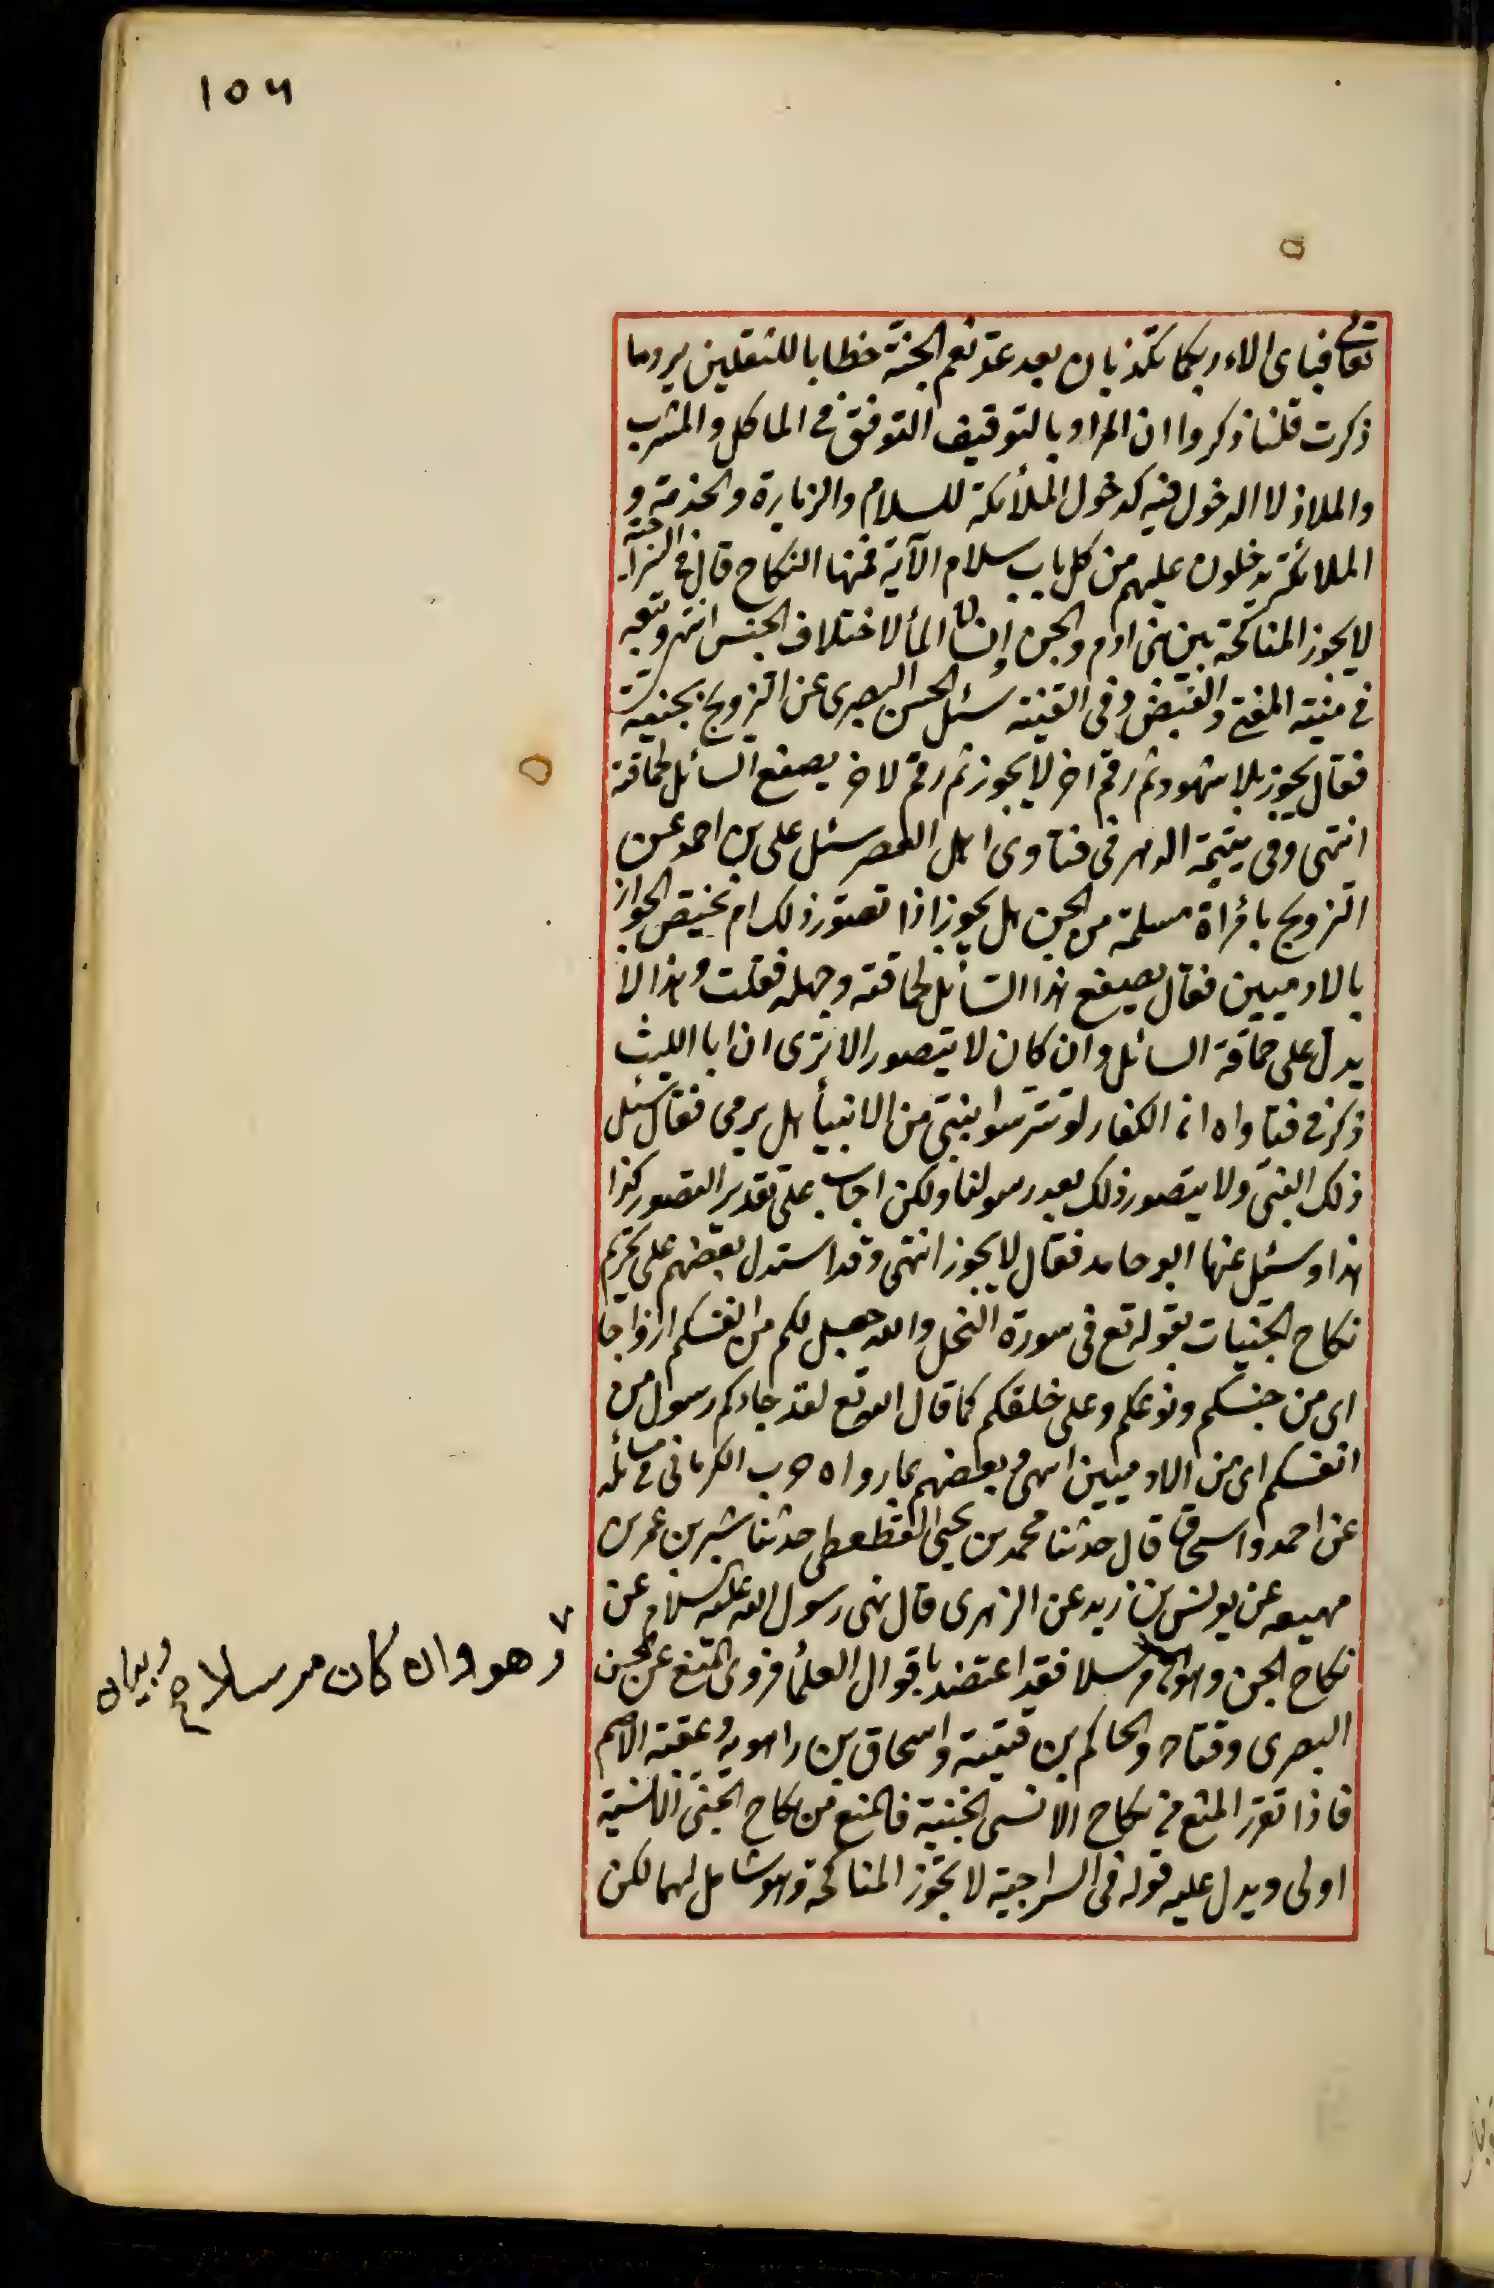 ١٥٦
تعالى فبأي الاء ربكما تكذبان بعد عد نعم الجنة خطابا للثقلين يرد ما
ذكرت قلنا ذكروا ان المراد بالتوقيف التوقف في الماكل والمشرب
والملاذ لا الدخول فيه كدخول الملائكة للسلام والزيارة والخدمة و
الملائكة يدخلون عليهم من كل باب سلام الآية فمنها النكاح قال في السراجية
لا يجوز المناكحة بين بني ادم والجن وانسان المأ لاختلاف الجنس انتهى وتبعه
في منية المفتي والفيض وفى القنية سئل الحسن البصرى عن التزويج بجنية
فقال يجوز بلا شهود ثم رقم اخر لا يجوز ثم رقم لاخر يصفع السائل لحماقته
انتهى وفى يتيمة الدهر فى فتاوى اهل العصر سئل على بن احمد عن
التزويج بامرأة مسلمة من الجن هل يجوز اذا تصور ذلك ام يختص الجواز
بالادميين فقال يصفع هذا السائل لحماقته وجهله فقلت وهذا لا
يدل على حماقة السائل وان كان لا يتصور الا ترى ان ابا الليث
ذكر في فتاواه ان الكفار لو تترسوا بنبي من الانبيأ هل يرمى فقال سئل
ذلك النبي ولا يتصور ذلك بعد رسولنا ولكن اجاب على تقدير التصور كذا
هذا وسئل عنها ابو حامد فقال لا يجوز انتهى وقد استدل بعضهم على تحريم
نكاح الجنيات بقوله تع فى سورة النحل والله جعل لكم من انفسكم ازواجا
اى من جنسكم ونوعكم وعلى خلقكم كما قال الله تع لقد جاءكم رسول من
انفسكم اى من الادميين انتهى و بعضهم بما رواه حرب الكرمانى في مسائله
عن احمد واسحاق قال حدثنا محمد بن يحيى القطعطى حدثنا بشر بن عمر بن
مهيعه عن يونس بن زيد عن الزهرى قال نهى رسول الله عليه السلام عن
نكاح الجن وهو مرسلا فقد اعتضد باقوال العلمأ فروى المنع عن الحسن
وهو وان كان مرسلا صح
البصرى وقتاده والحاكم بن قتيبة واسحاق بن راهويه وعقبة الاصم
فاذا تقرر المنع في نكاح الانسى الجنية فالمنع من نكاح الجنى الانسية
اولى ويدل عليه قوله فى السراجية لا تجوز المناكحة وهو شامل لهما لكن